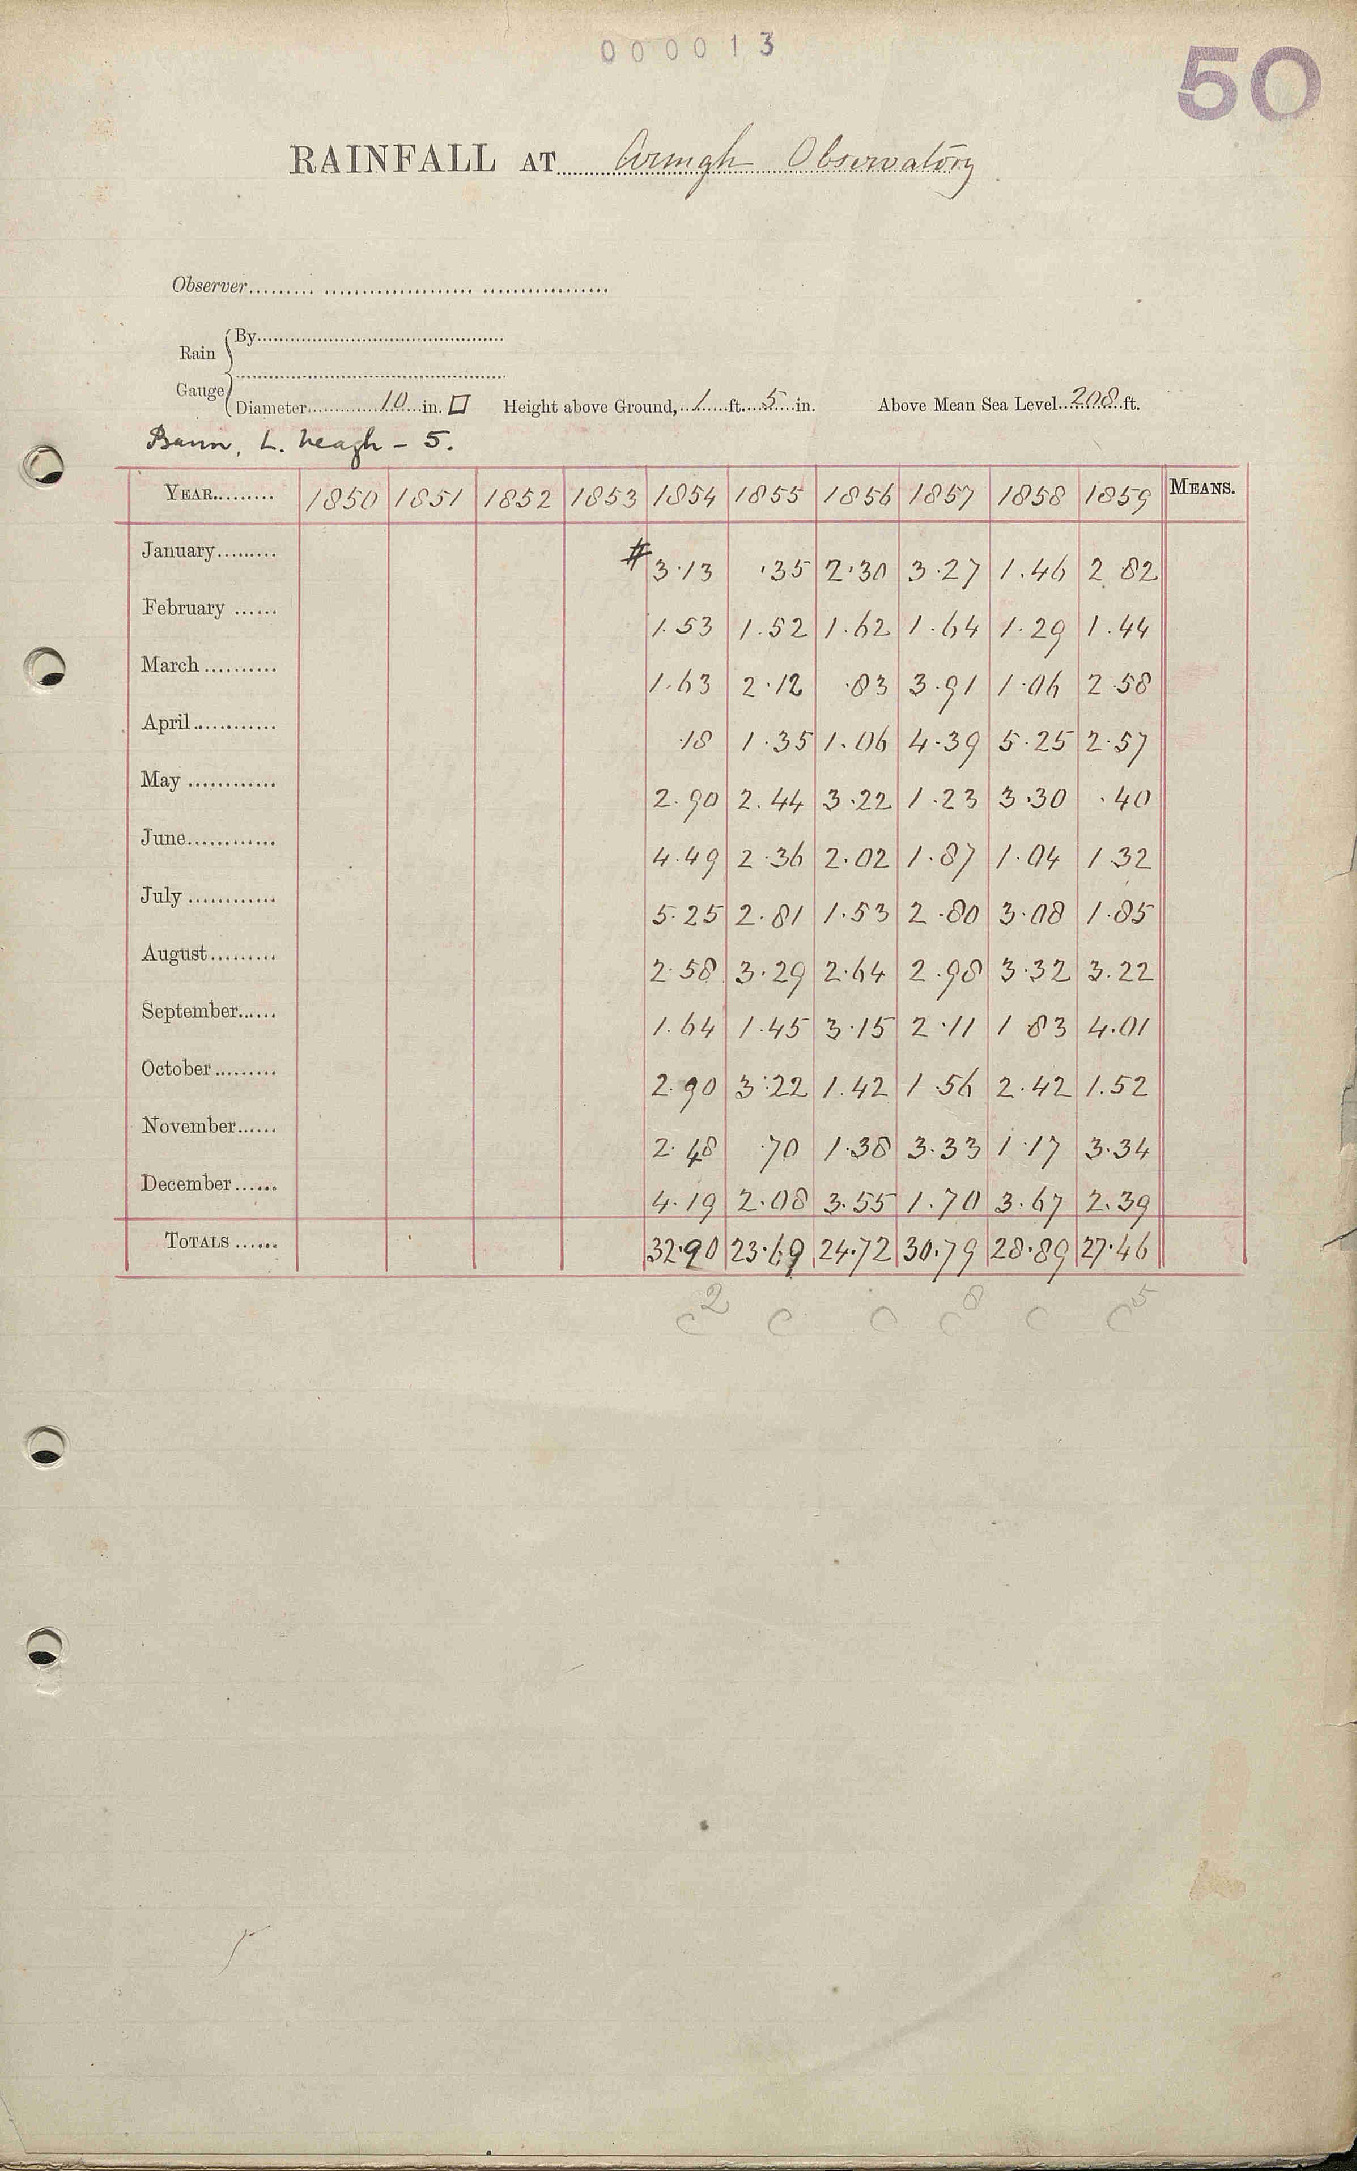 000013
50
RAINFALL AT Armagh Observatory
Observer
Rain Gauge
By
Diameter 10 in. □ Height above Ground, 1 ft. 5 in. Above Mean Sea Level 208 ft.
Bann, L. Neagh - 5.
YEAR 1850 1851 1852 1853 1854 1855 1856 1857 1858 1859 MEANS.
January # 3.13 .35 2.30 3.27 1.46 2.82
February 1.53 1.52 1.62 1.64 1.29 1.44
March 1.63 2.12 .83 3.91 1.06 2.58
April .18 1.35 1.06 4.39 5.25 2.57
May 2.90 2.44 3.22 1.23 3.30 .40
June 4.49 2.36 2.02 1.87 1.04 1.32
July 5.25 2.81 1.53 2.80 3.08 1.85
August 2.58 3.29 2.64 2.98 3.32 3.22
September 1.64 1.45 3.15 2.11 1.83 4.01
October 2.90 3.22 1.42 1.56 2.42 1.52
November 2.48 .70 1.38 3.33 1.17 3.34
December 4.19 2.08 3.55 1.70 3.67 2.39
TOTALS 32.90 23.69 24.72 30.79 28.89 27.46
c2 c c c8 c c5